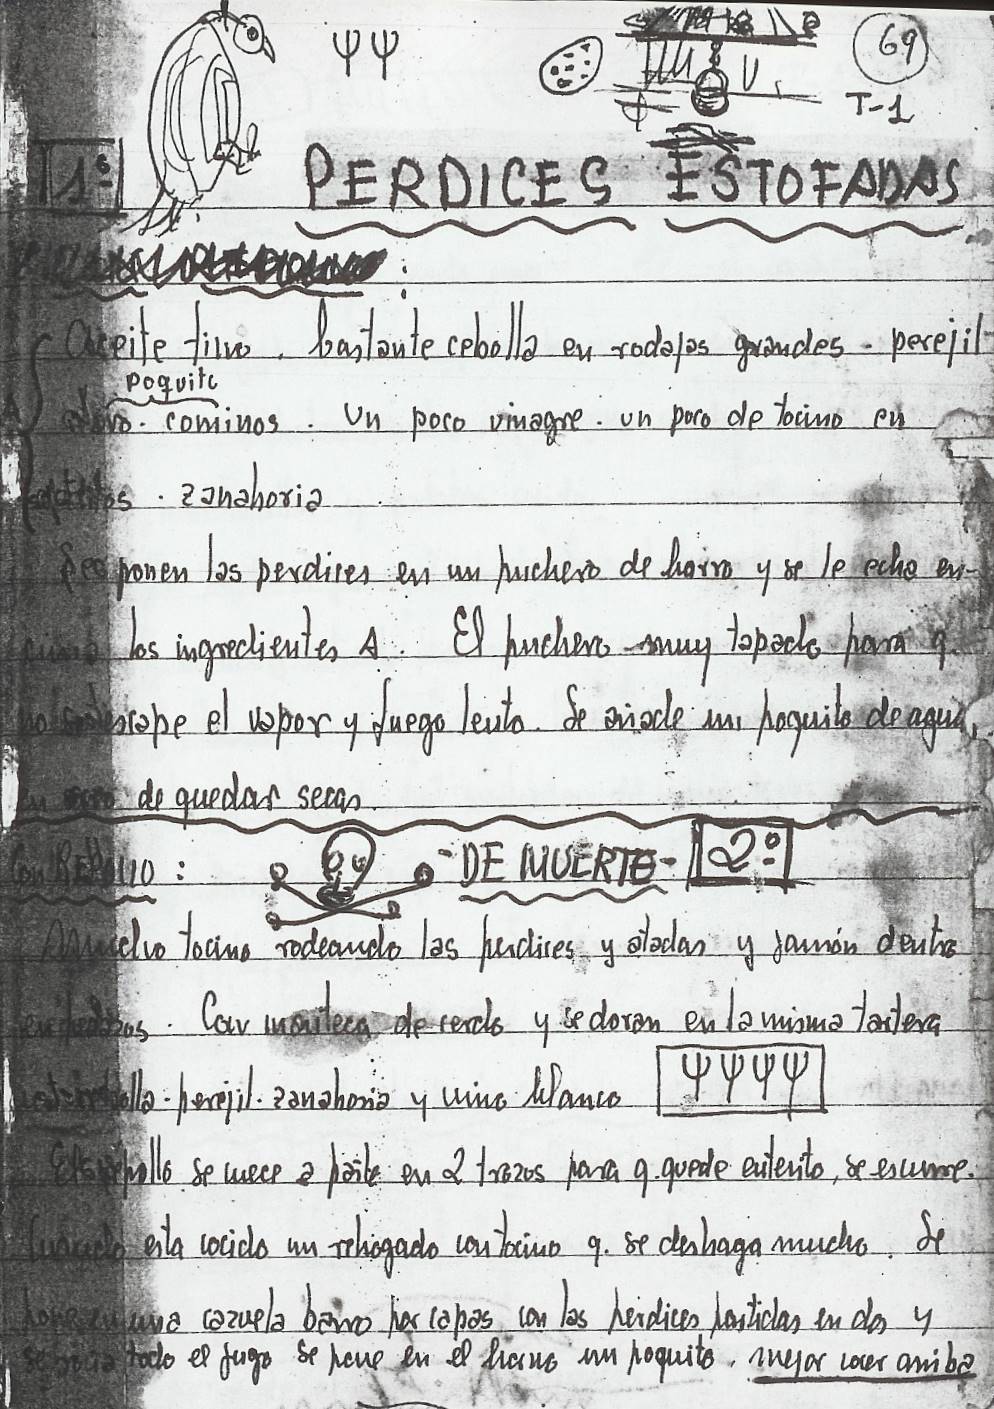 69
T-1
1º
PERDICES ESTOFADAS
Aceite fino. bastante cebolla en rodajas grandes - perejil
poquito
clavo. cominos. Un poco vinagre. un poco de tocino en
. zanahoria
Se ponen las perdices en un puchero de barro y se le echa en-
cima los ingredientes A. El puchero muy tapado para q.
no escape el vapor y fuego lento. Se añade un poquito de agua,
en caso de quedar secas
Con REPOLLO : - DE MUERTE - 2º
Mucho tocino rodeando las perdices y atadas y jamón dentro
en pedazos. Con manteca de cerdo y se doran en la misma tartera
cebolla. perejil. zanahoria y vino blanco
El repollo se cuece a parte en 2 trozos para q. quede enterito, se escurre.
Cuando esta cocido un rehogado con tocino q. se deshaga mucho. Se
pone en una cazuela barro por capas con las perdices partidas en dos y
todo el jugo se pone en el horno un poquito. mejor cocer arriba